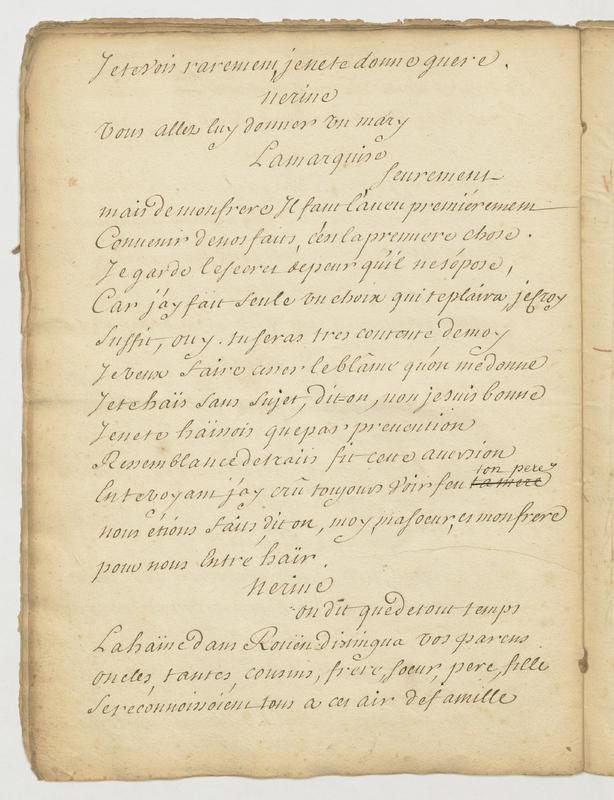 Je te vois rarement, je ne te donne guere.
Nerine
Vous allez luy donner un mary
La marquise
Seurement
mais de mon frere Il faut l'aveu premiérement
Convenir de nos faits, c'en la premiere chose.
Je garde le secret de peur qu'il ne s'opose,
Car j'ay fait seule un choix qui te plaira, je croy
Suffit, ouy. tu seras tres contente de moy
Je veux faire cesser le blâme qu'on me donne
Je te haïs sans sujet, dit-on, non je suis bonne
Je ne te haïssois que par prevention
Ressemblance de traits fit cette aversion
En te voyant j'ay crû toujours voir feu ta mere ton pere
nous étions faits, dit on, moy, ma soeur, et mon frere
pour nous Entre haïr.
Nerine
on dit que de tout temps
La haine dans Roüen distingua vos parens
oncles, tantes, cousins, frere, soeur, pere, fille
Se reconnoissoient tous a cet air de famille